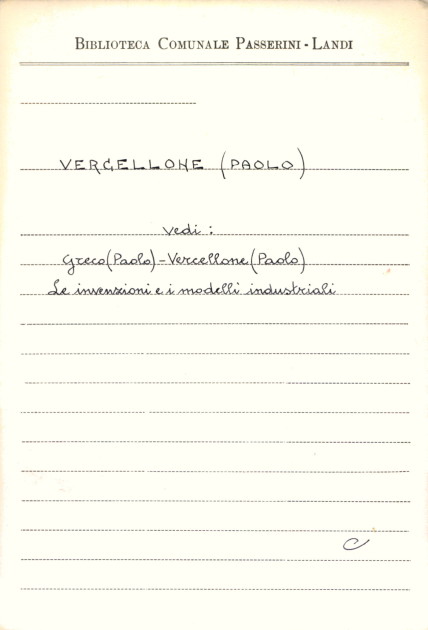 BIBLIOTECA COMUNALE PASSERINI - LANDI
VERCELLONE (PAOLO)
vedi :
Greco (Paolo) - Vercellone (Paolo)
Le invenzioni e i modelli industriali
C